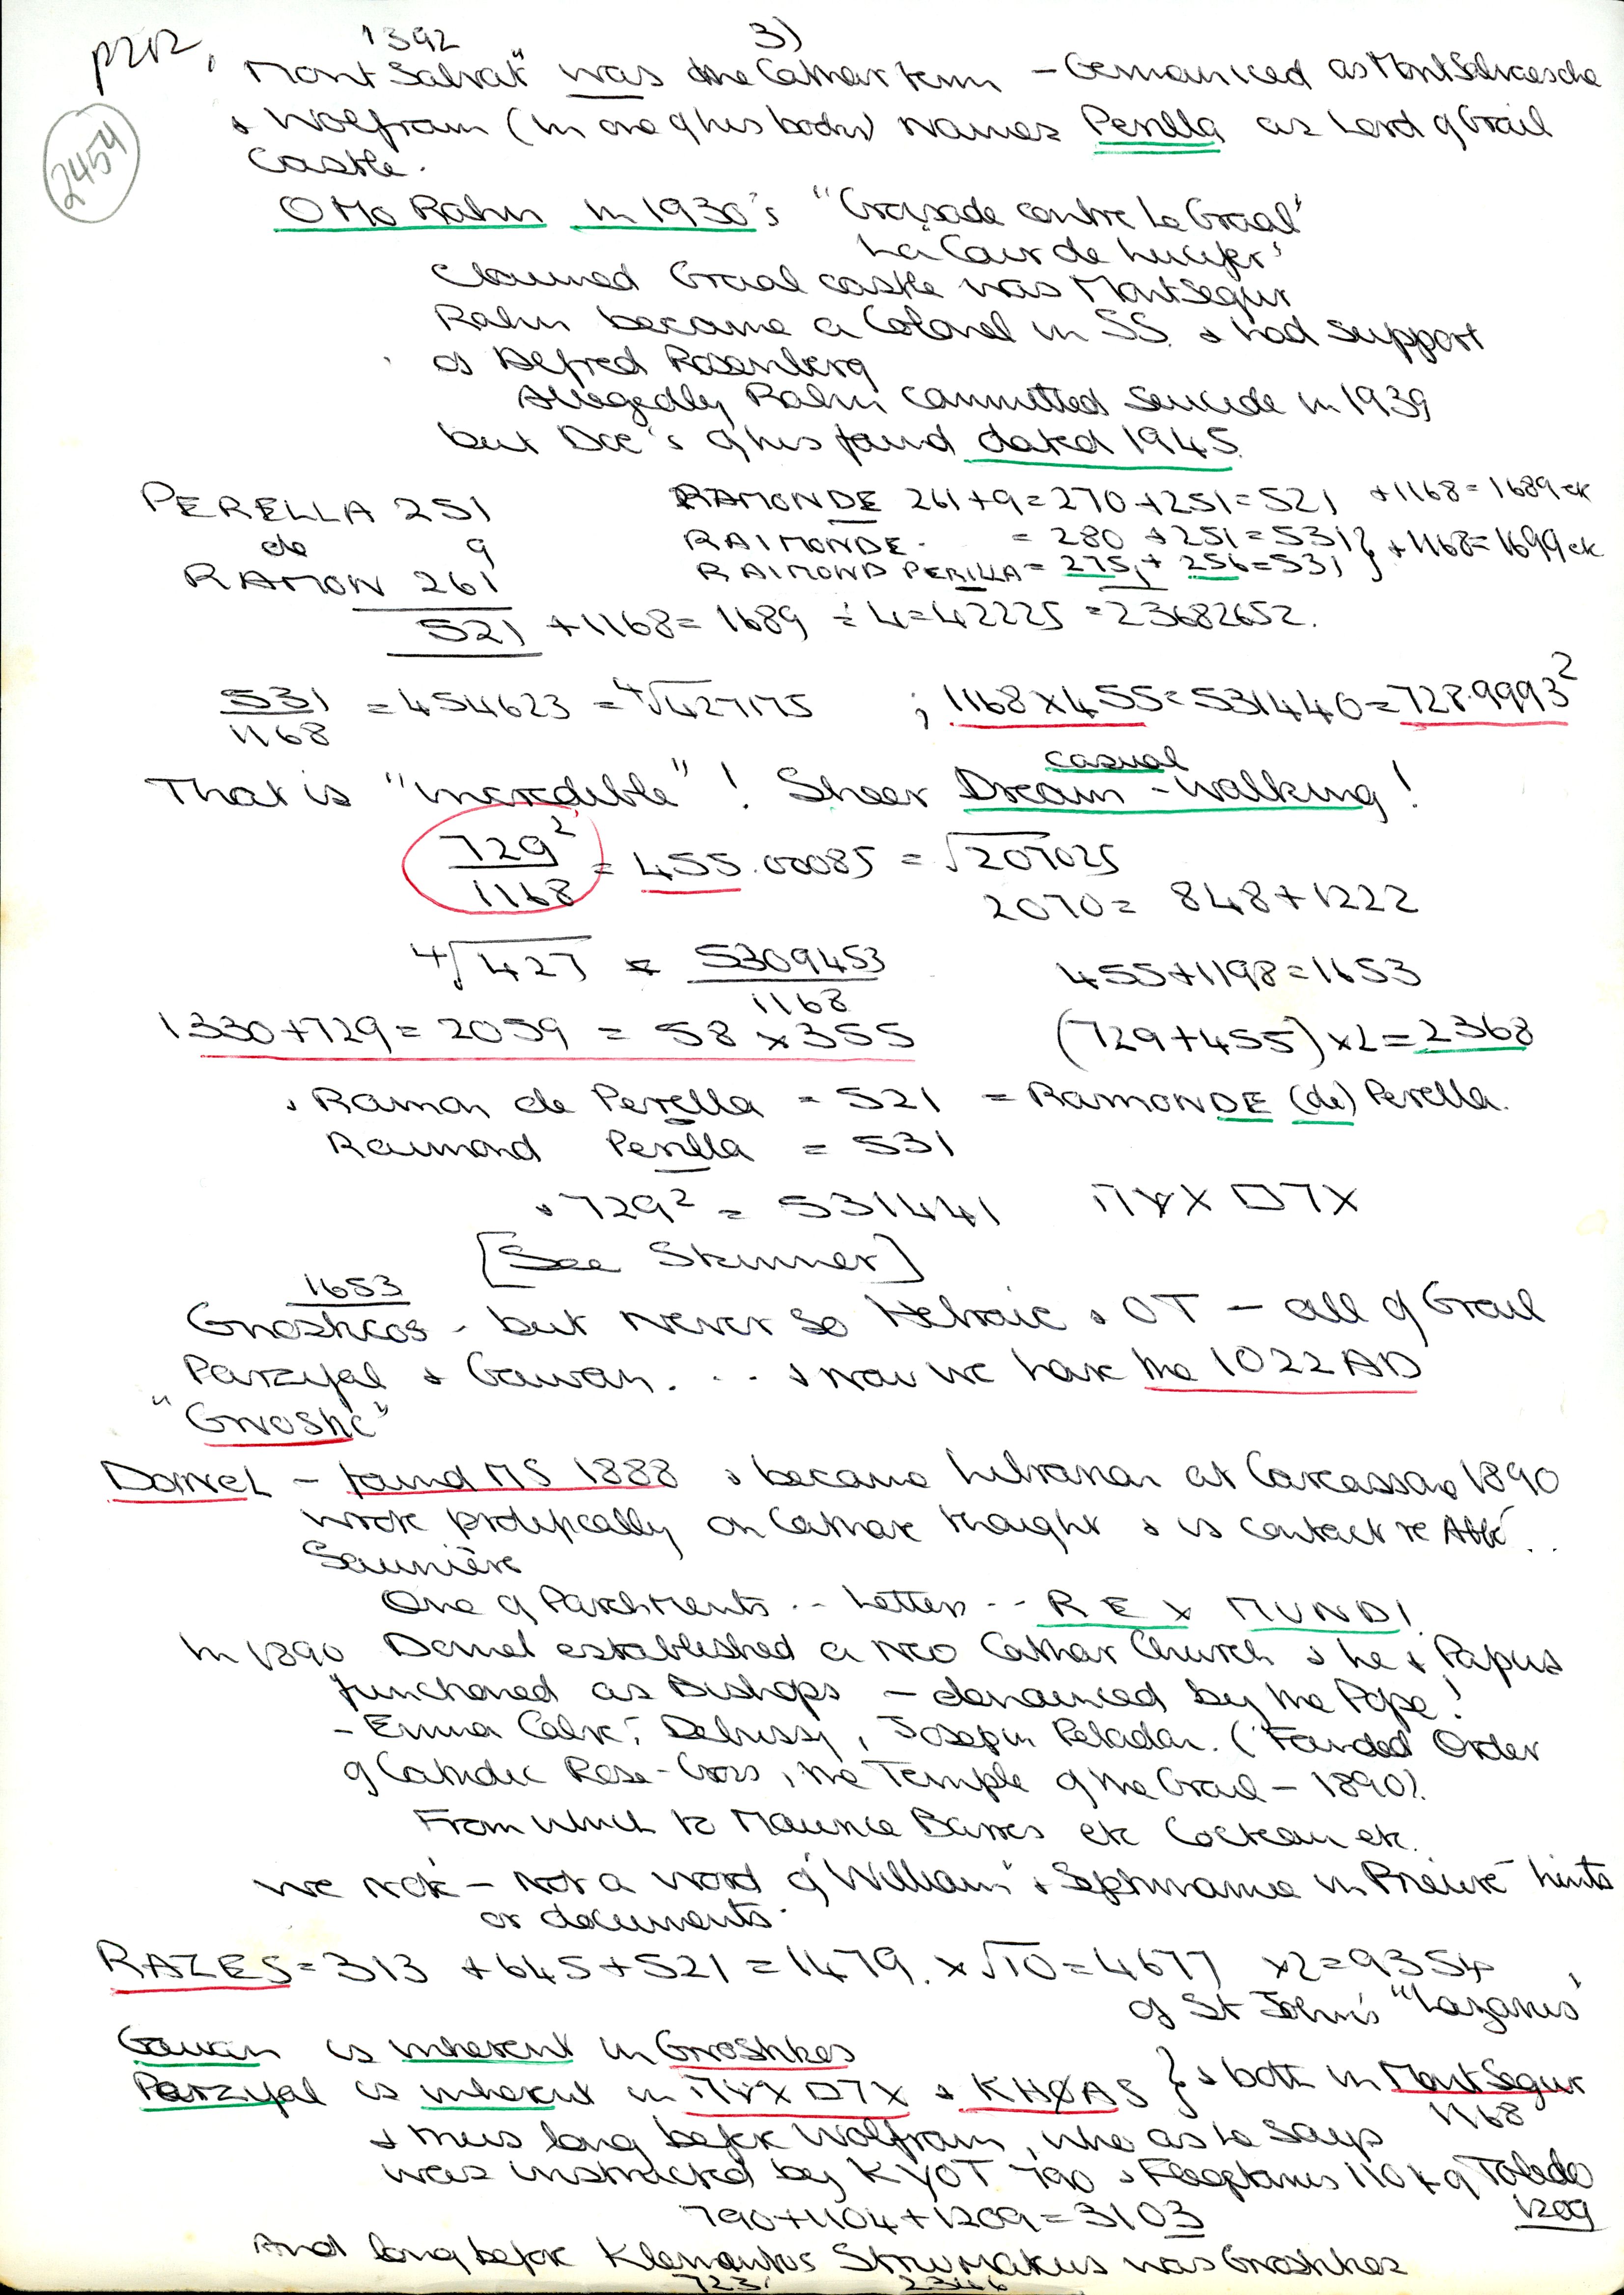 p212, 1392 3)
"Mont Salvat" was the Cathar term – Germanised as MontSalvaesche
& Wolfram (in one of his books) names Perilla as Lord of Grail
Castle.
2454
Otto Rahn in 1930's "Croisade contre Le Graal"
La Cour de Lucifer'
Claimed Graal castle was MontSegur
Rahn became a Colonel in SS. & had support
of Alfred Rosenberg
Allegedly Rahn committed suicide in 1939
but Doc's of his found dated 1945.
PERELLA 251
de 9
RAMON 261
521 +1168 = 1689 ÷ 4 = 42225 = 23682652.
RAMONDE 261+9=270+251=521 +1168=1689 etc
RAIMONDE. = 280 +251=531} +1168=1699 etc
RAIMOND PERILLA = 275 + 256=531}
531/1168 = 454623 = 4√427175 ; 1168 x 455 = 531440 = 728.9993²
That is "incredible"! Sheer casual Dream-walking!
729²/1168 = 455.00085 = √207025
2070 = 848+1222
4√427 = 5309453/1168 455+1198=1653
1330+729 = 2059 = 58 x 355 (729+455)x2=2368
& Ramon de Perella = 521 = RamonDE (de) Perella.
Raimond Perilla = 531
& 729² = 531441
[See Skinner]
1653
Gnostikos – but never so Hebraic & OT – all of Grail
Parzifal & Gawan. . . & now we have the 1022 AD
"Gnostic"
Doinel – found MS 1888 & became librarian at Carcassone 1890
wrote prolifically on Cathare thought & is contact re Abbé ..
Saunière
One of Parchments .. Letters .. REX MUNDI.
In 1890 Doinel established a neo Cathar Church & he & Papus
functioned as Bishops – denounced by the Pope!
– Emma Calvé, Debussy, Joseph Peladan. (Founded Order
of Catholic Rose-Cross, the Temple of the Grail – 1890).
From which to Maurice Barres etc Cocteau etc.
We note – not a word of "William" & Septimanie in Prieuré hints
or documents.
RAZES = 313 +645+521 = 1479. x√10 = 4677 x2=9354
of St John's "Lazarus"
Gawan is inherent in Gnostikos
Parzifal is inherent in & KHØAS } & both in MontSegur
1168
& thus long before Wolfram, who as he says
was instructed by KYOT 790 & Flegetanis 1104 of Toledo
1209
790+1104+1209=3103
And long before Klemantus Stromakus was Gnostikos
723 2346